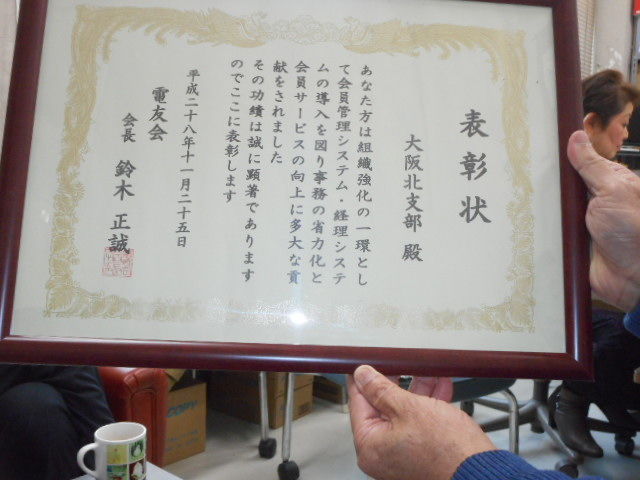 表彰状
大阪北支部 殿
あなた方は組織強化の一環とし
て会員管理システム・経理システ
ムの導入を図り事務の省力化と
会員サービスの向上に多大な貢
献をされました
その功績は誠に顕著であります
のでここに表彰します
平成二十八年十一月二十五日
電友会
会長 鈴木 正誠
COPY